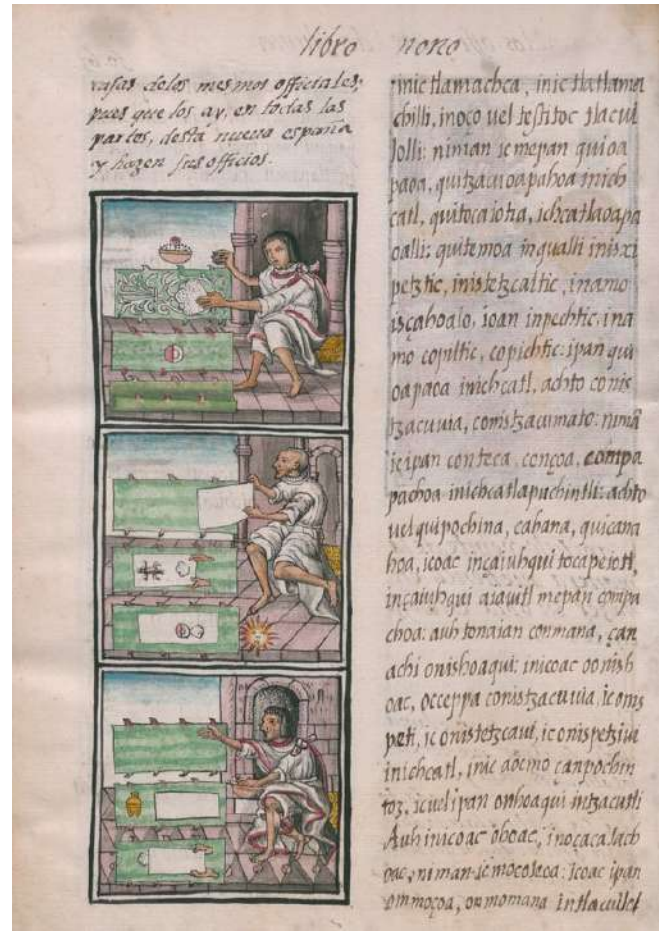 libro nono
rasas delos mesmos officiales;
pues que los ay, en todas las
partes, desta nueua españa
y hazen sus officios.
inic tlamachca, inic tlatlama
chilli, inoço uel teštitoc tlacui
lolli: niman ic mepan quioa
paoa, quitzacuoapahoa inich
catl, quitocaiotia, ichcatlaoapa
oalli: quitemoa inqualli inixxi
petztic, inixtetzcaltic, inamo
ixçahoalo, ioan inpechtic, ina
mo copiltic, copichtic: ipan qui
oapaoa inichcatl, achto conix
tzacuuia, conixtzacumato: nimã
ic ipan conteca, conçoa, compa
pachoa inichcatlapuchintli: achto
uel quipochina, cahana, quicana
hoa, icoac inçaiuhqui tocapeiotl,
inçaiuhqui aiauitl mepan compa
choa: auh tonaian conmana, çan
achi onixhoaqui: inicoac oonixh
oac, occeppa conixtzacuuia, ic onix
peti, ic onixtetzcaui, ic onixpetziui
inichcatl, inic aocmo çanpochin
toz, ic uel ipan onhoaqui intzacutli
Auh inicoac ohoac, inoçacalach
oac, niman ic mocoleoa: icoac ipan
ommoçoa, onmomana intlacuilol